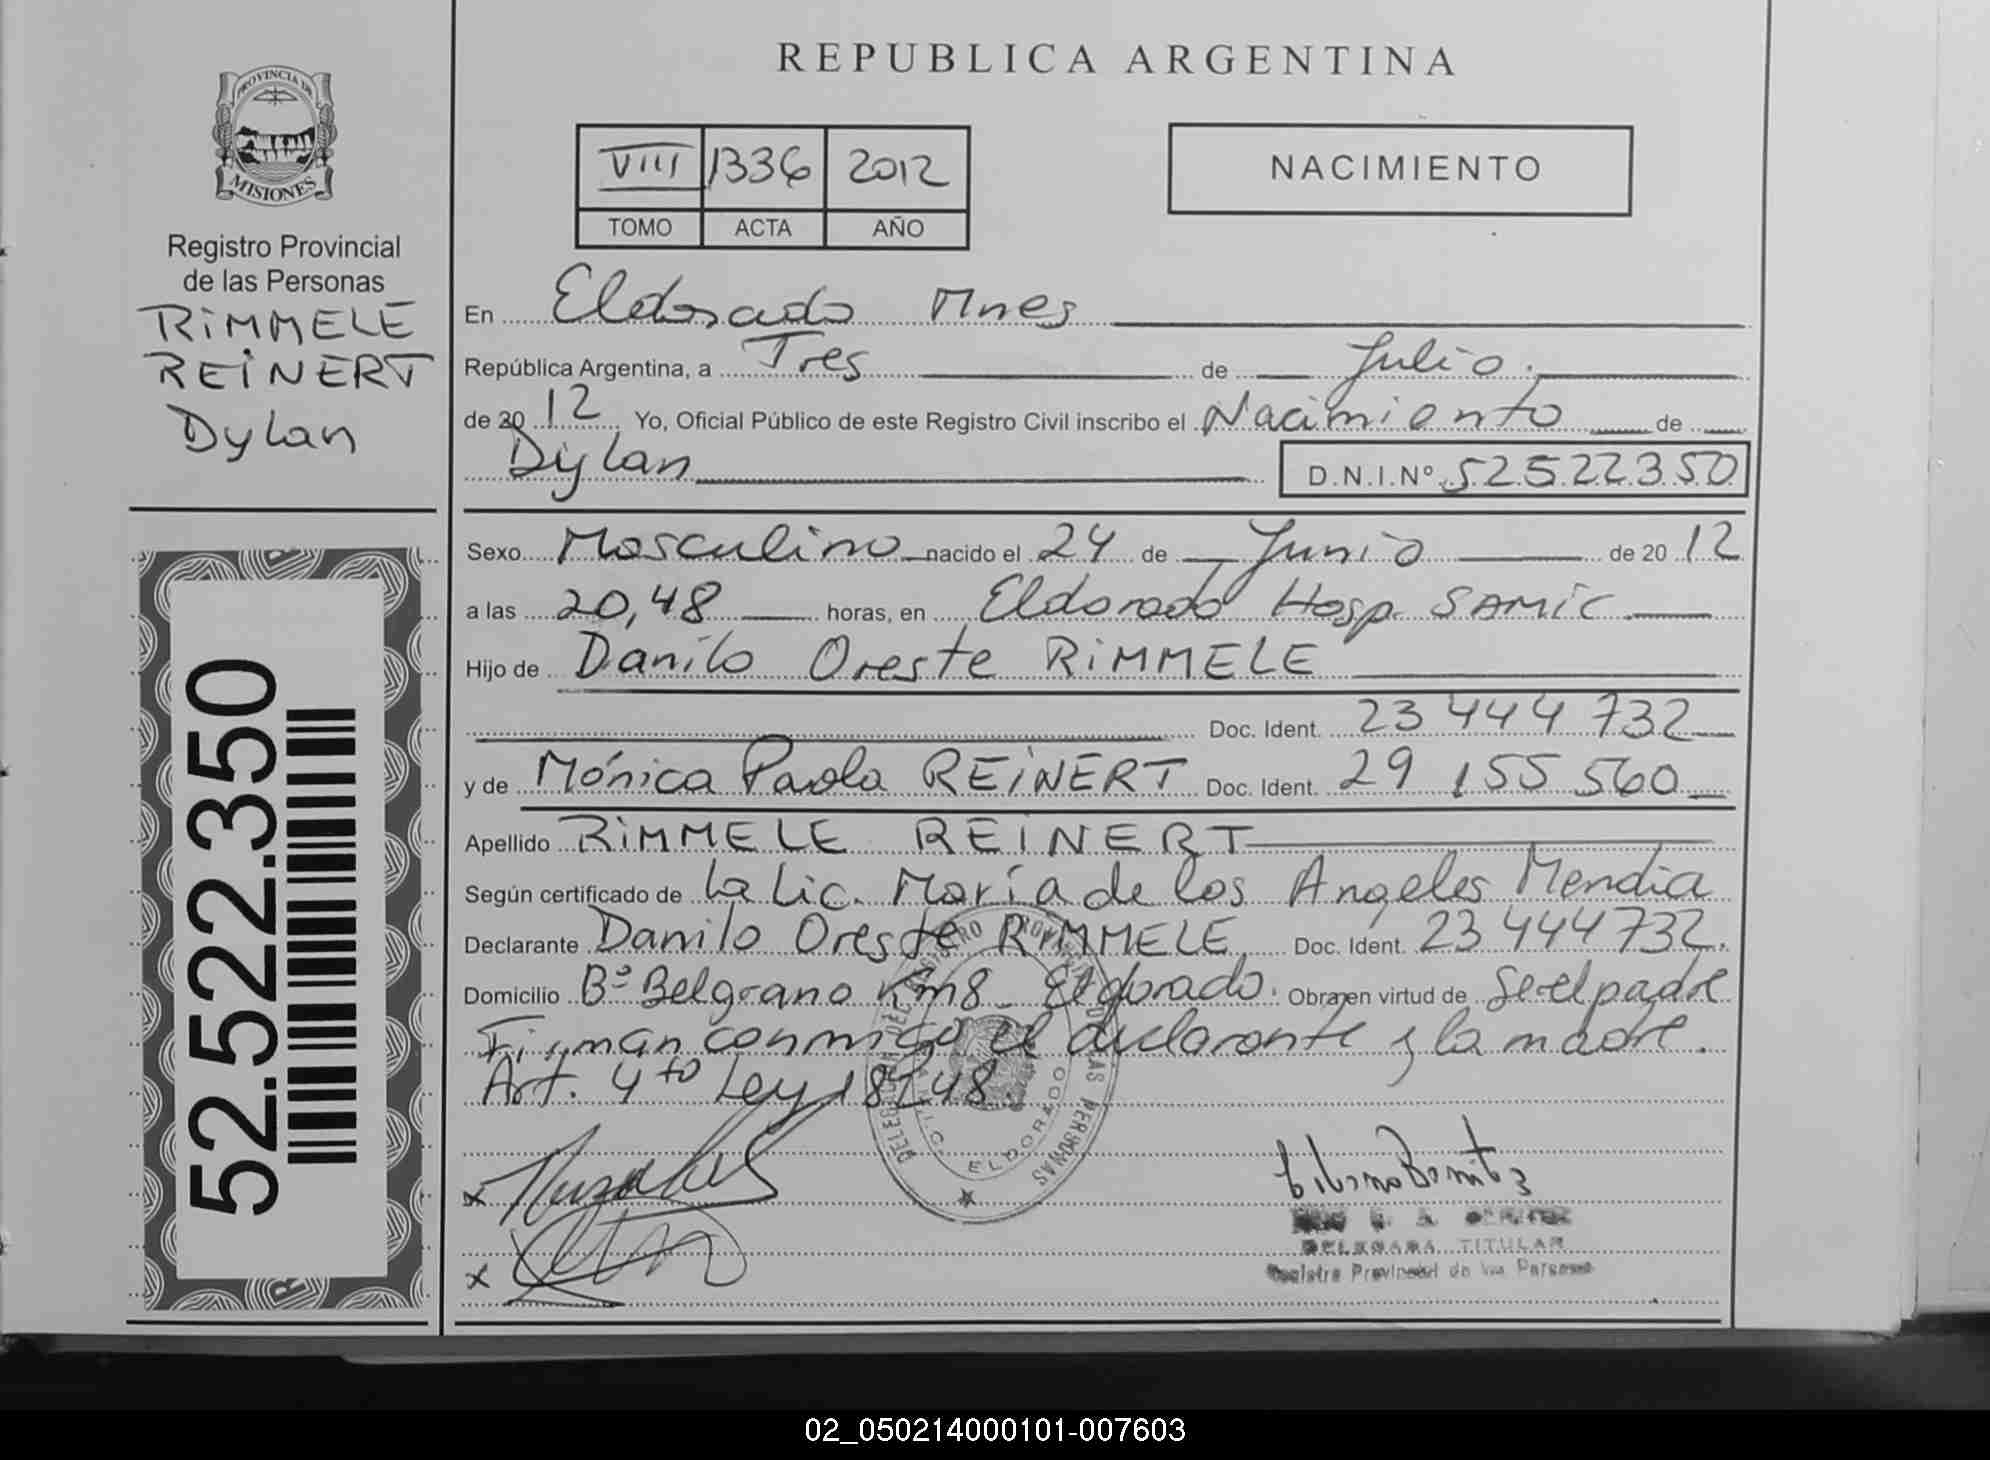 PROVINCIA DE
MISIONES
Registro Provincial
de las Personas
RIMMELE
REINERT
Dylan
52.522.350
REPUBLICA ARGENTINA
VIII 1336 2012
TOMO ACTA AÑO
NACIMIENTO
En Eldorado Mnes
República Argentina, a Tres de Julio.
de 20 12 Yo, Oficial Público de este Registro Civil inscribo el Nacimiento de
Dylan D.N.I.Nº 52522350
Sexo Masculino nacido el 24 de Junio de 20 12
a las 20,48 horas, en Eldorado Hosp. SAMIC
Hijo de Danilo Oreste RIMMELE
Doc. Ident. 23 444 732
y de Mónica Paola REINERT Doc. Ident. 29 155 560
Apellido RIMMELE REINERT
Según certificado de La Lic. María de los Angeles Mendia
Declarante Danilo Oreste RIMMELE Doc. Ident. 23 444 732.
Domicilio Bº Belgrano Km8 - Eldorado. Obra en virtud de Ser el padre
Firman conmigo el declarante y la madre.
Art. 4to Ley 18248.
ELDORADO
DELEGADA TITULAR
Registro Provincial de las Personas
02_050214000101-007603